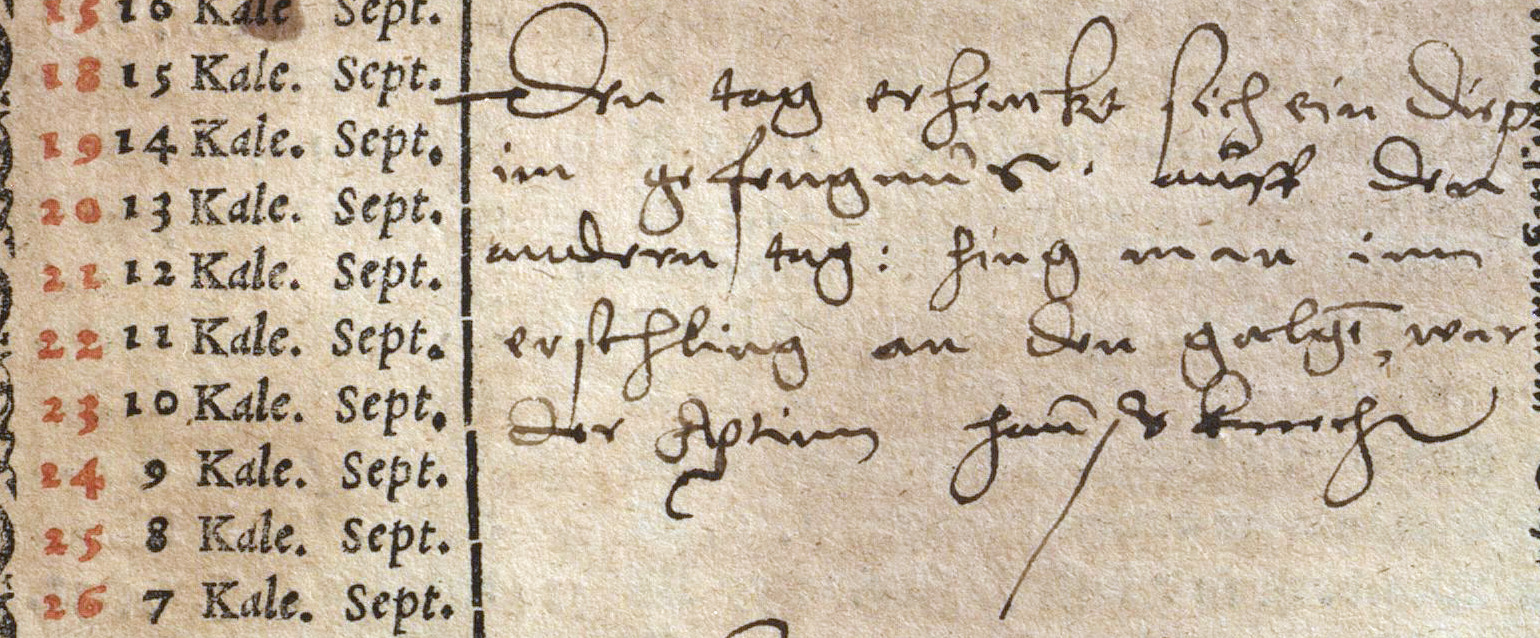 15 16 Kale Sept.
18 15 Kale. Sept.
19 14 Kale. Sept.
20 13 Kale. Sept.
21 12 Kale. Sept.
22 11 Kale. Sept.
23 10 Kale. Sept.
24 9 Kale. Sept.
25 8 Kale. Sept.
26 7 Kale. Sept.
Den tag erhenckt sich ein diep
im gefengnüs. auff den
andern tag: hing man inn
erschling an den galgē, war
der Aptinn hauß knecht